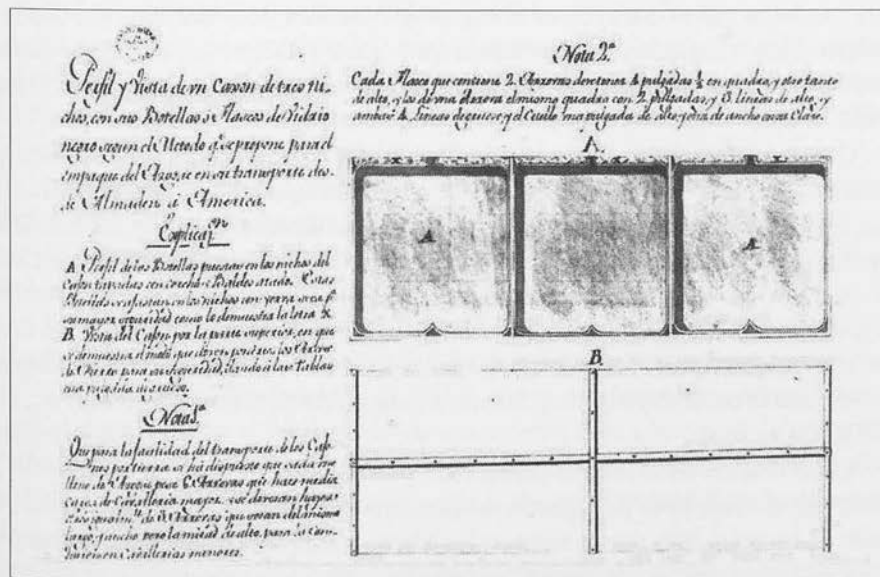 Perfil y Vista de vn Caxon de tres ni-
chos, con sus Botellas o Flascos de Vidrio
negro segun el Metodo q.e se propone para el
empaque del Azogue en su transporte des-
de Almaden à America.
Explicaz.on
A Perfil de las Botellas puestas en los nichos del
Cajon tapadas con corcho y Baldes atado. Estas
se ajustan en los nichos con yerva seca p.a
su mayor seguridad como lo demuestra la letra A.
B. Vista del Cajon por la parte superior, en que
se demuestra el modo que deven ponerse los
de Hierro para su seguridad, dando à las Tablas
una pulgada de grueso.
Nota 1.a
Que para la facilidad del transporte de los Cajo-
nes por tierra se ha dispuesto que cada uno
lleno de Azogue pese 6 Arrovas que hace media
carga de Cavalleria mayor y se
de 3 Arrovas que sean del mismo
largo, y ancho pero la mitad de alto, para la con-
duccion en Cavallerias menores.
Nota 2.a
Cada Flasco que contiene 2. Arrovas deve tener 4 pulgadas ½ en quadro, y otro tanto
de alto, y los de vna Arrova el mismo quadro con 2 pulgadas, y 3 lineas de alto, y
ambas 4 Lineas de grueso y el Cuello vna pulgada de alto, y otra de ancho en su Claro.
A.
A
A
B.